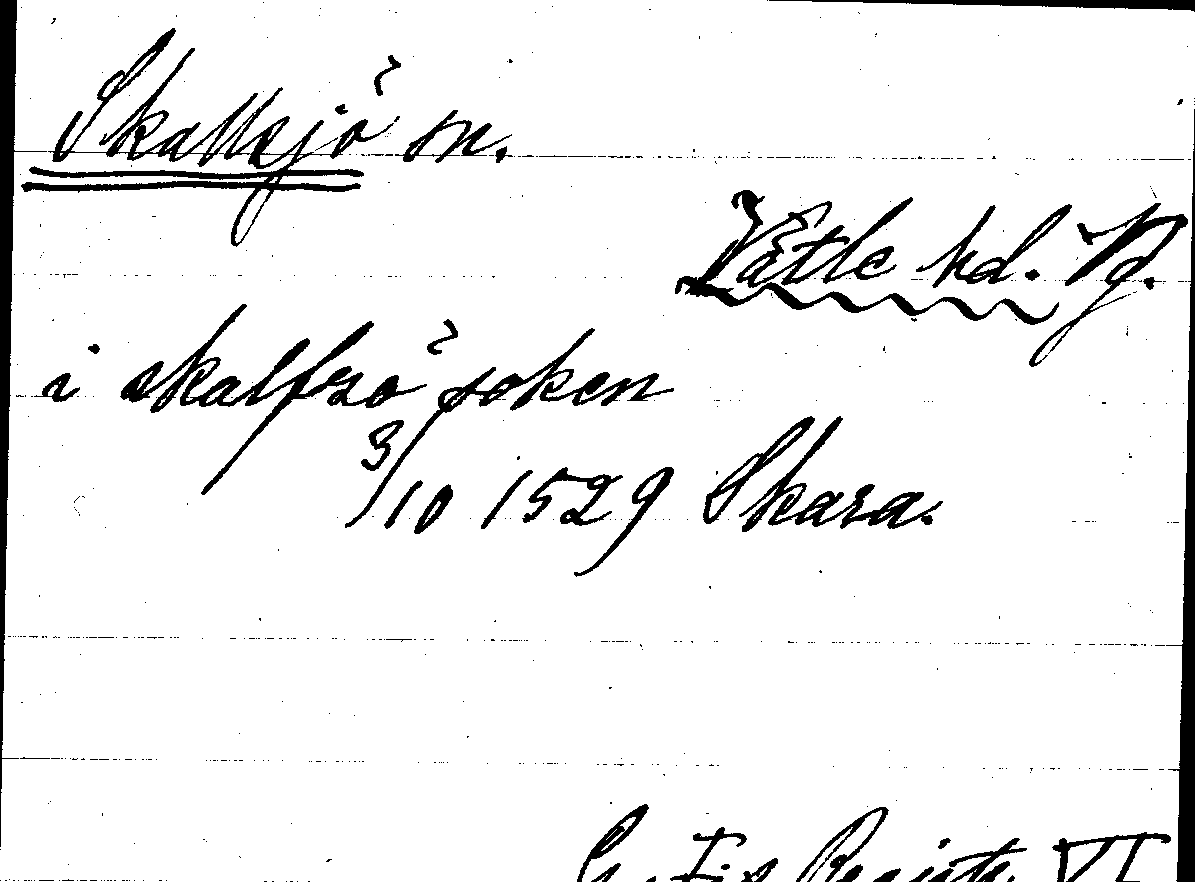 Skallsjö sn.
Vättle hd. Vg.
i skalfzö soken
3/10 1529 Skara.
G. I:s Registr. VI